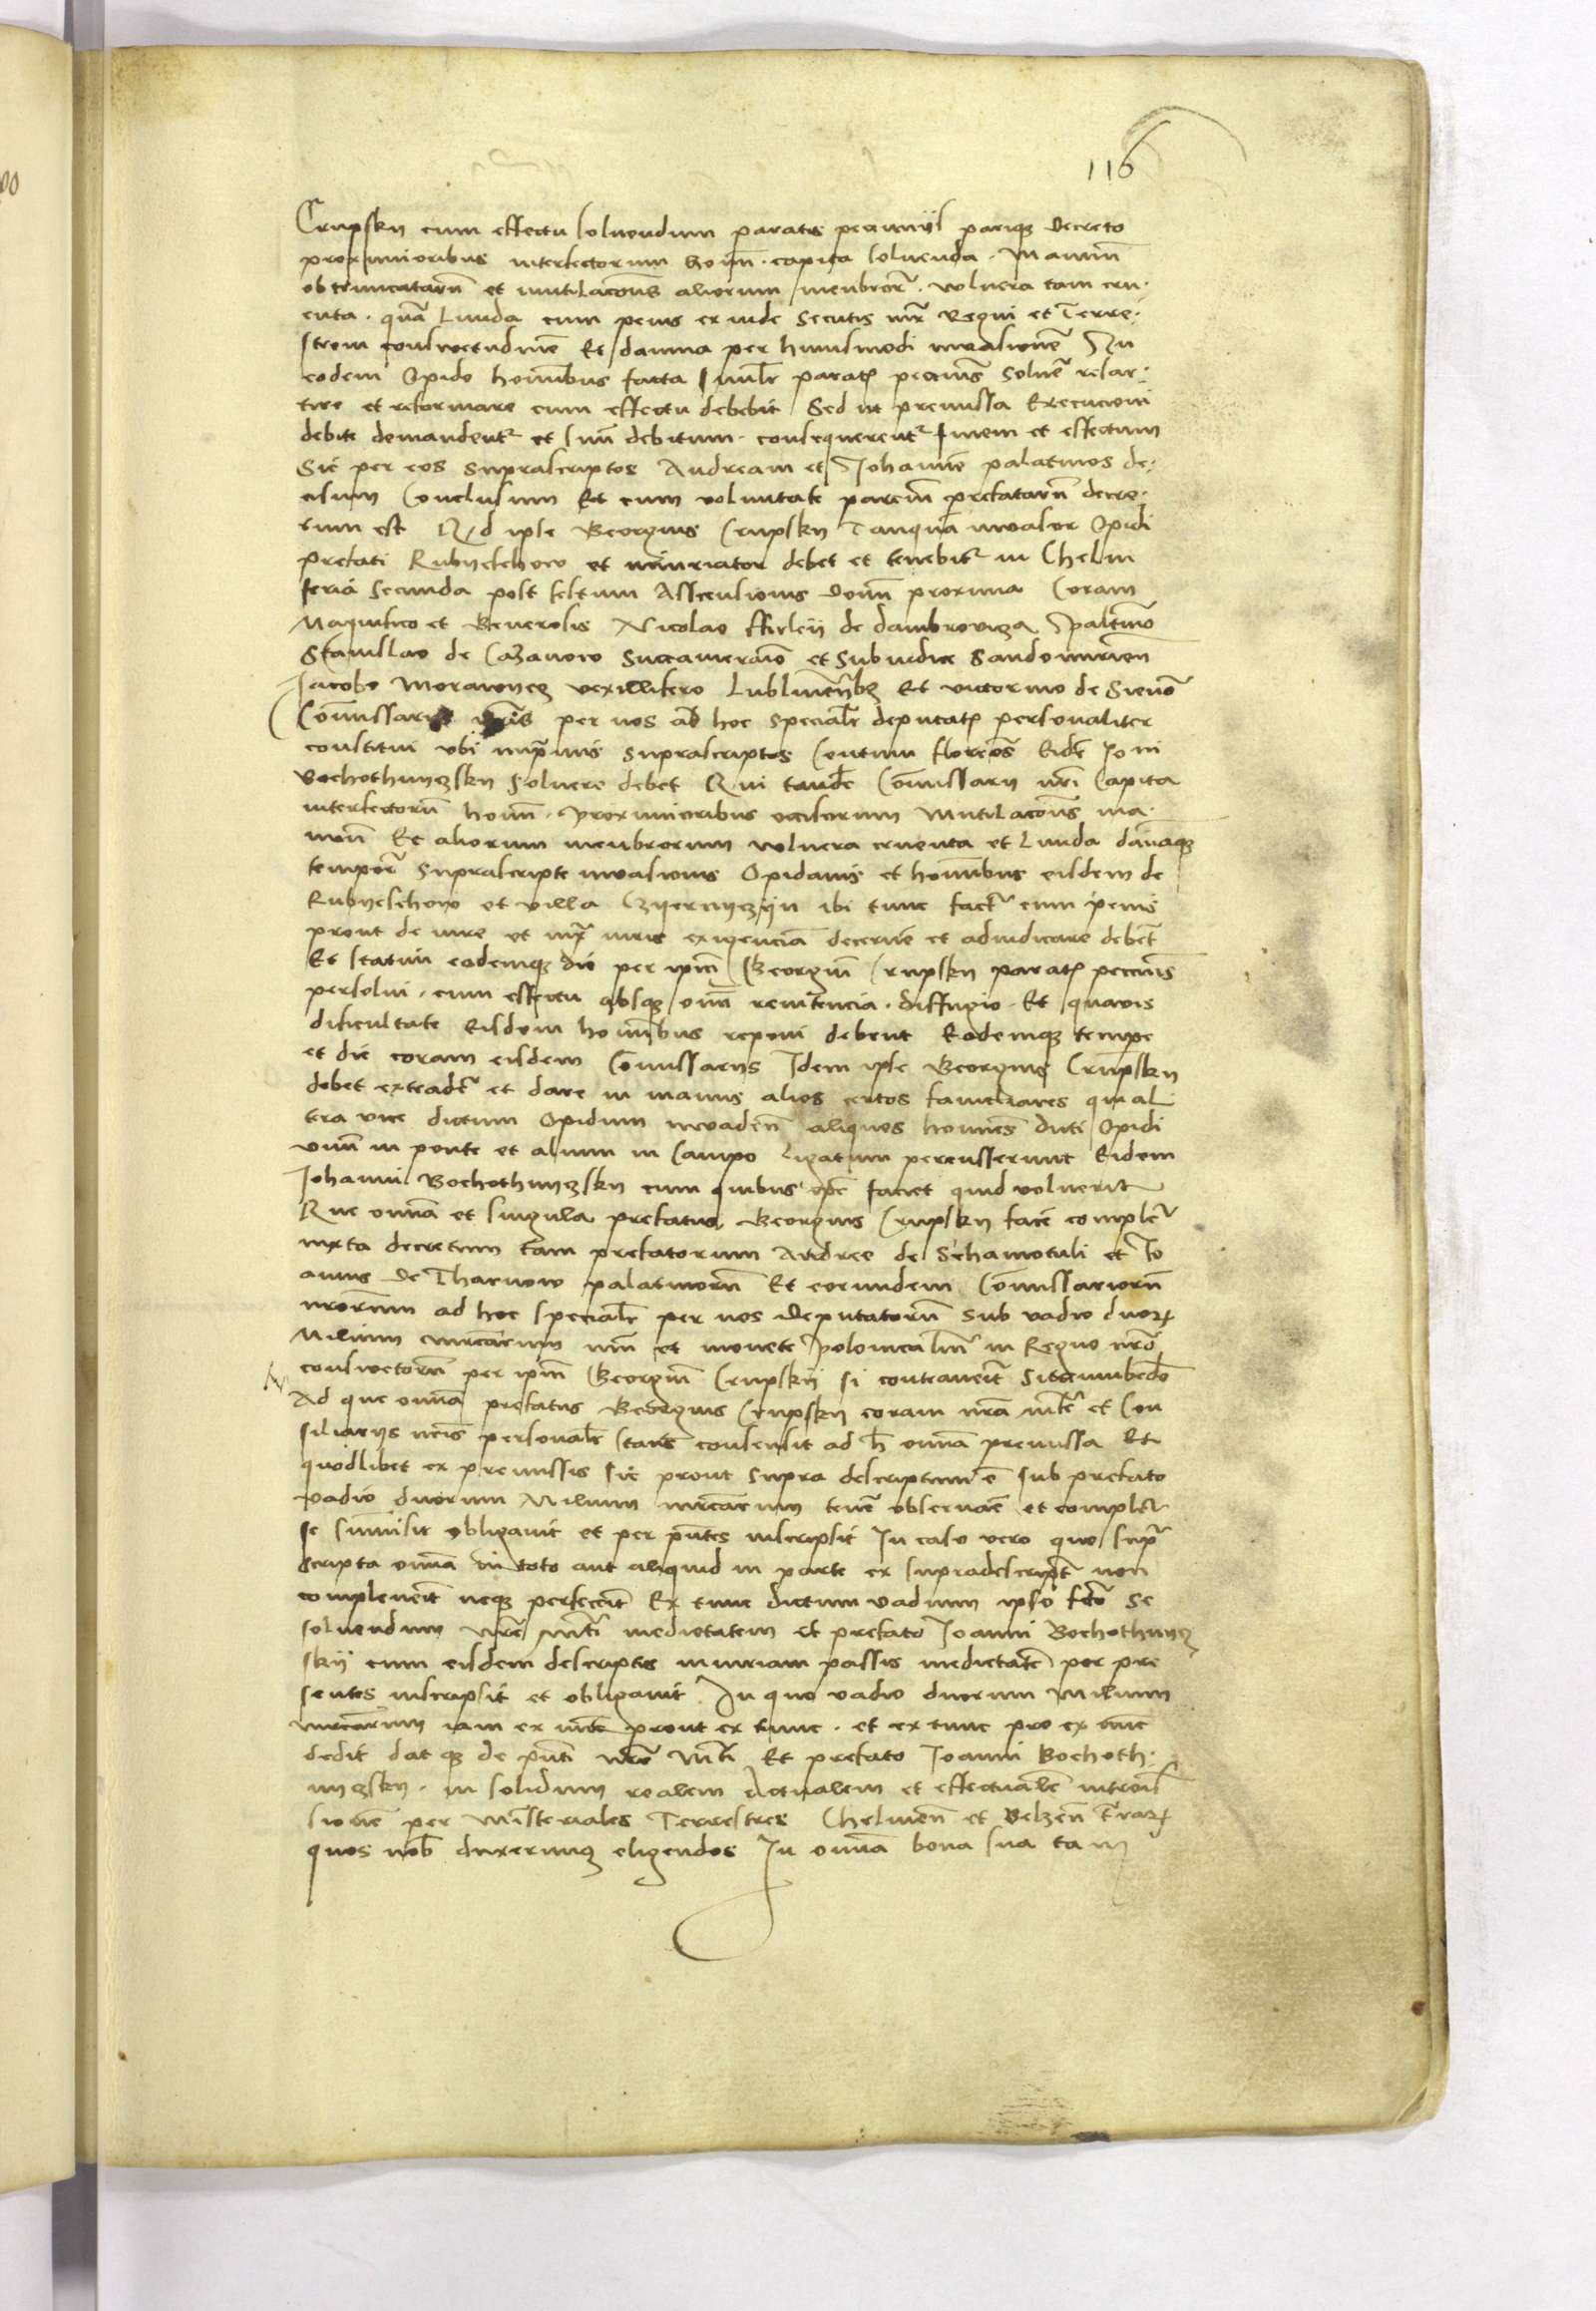 116
Crupsky cum effectu solvendum paratis pecuniis pariq3 Decreto
proximioribus interfectorum hoim̃ . capita solvenda . Manuũ
obtruncatarũ et mutilacoẽs aliorum membrorʒ . vulnera tam cru-
enta . quã Livida cum penis ex inde Secutis iux̃ Regni et Terre-
strem consuetudinẽ Et damna per huiusmodi invasionẽ In
eodem Opido hominibus facta simil̃r paratʒ pecuniis Solvẽ resar-
cire et reformare cum effectu debebit Sed ut premissa Execucioni
debite demandentʳ et suũ debitum . consequerentʳ finem et effectum
Sic per eos suprascriptos Andream et Johannẽ palatinos de-
cisum Conclusum Et cum voluntate parciũ prefatarũ decre-
tum est Q̃d ipse Georgius Crupsky Tanquã invasor Opidi
prefati Rubyeschow et iniuriator debet et tenebitʳ in Chelm
feria Secunda post festum Ascensionis Domĩ proxima Coram
Magnifico et Generosis Nicolao ffirleij de dambrovicza palatino
Stanislao de Cazanow Succamerario et Subiudice Sandomirien̄
Jacobo Morawyecz vexillifero Lublinen̄ Et victorino de Sienno
Com̃issariis nr̃is per nos ad hoc specialr̃ deputatʒ personaliter
constitui vbi inprimis suprascriptos Centum florenos Eidẽ Joñi
Bochothnyczsky Solvere debet Qui tandẽ Com̃issarij nr̃i Capita
interfectorũ hoĩm . proximioribus occisorum Mutilacoẽs ma-
nuũ Et aliorum membrorum vulnera cruenta et Livida dam̃aq3
tempore suprascripte invasionis Opidanis et hominibus eisdem de
Rubyeschow et villa ibi tunc fact cum penis
prout de iure et iux̃ iuris exigenciã decernẽ et adiudicare debet̃
Et statim eademq3 die per ipm̃ Georgiũ Crupsky paratʒ pecuniis
persolvi . cum effectu absq3 omĩ renitencia . diffugio . Et quavis
dificultate Eisdem hominibus reponi debent Eodemq3 tempe
et die coram eisdem Com̃issariis Idem ipse Georgius Crupsky
debet extradeʳ et dare in manus alios certos familiares qui al
tera vice dictum Opidum invaden̄ aliquos homines dicti Opidi
vnũ in ponte et alium in Campo Ligatum percusserunt Eidem
Johanni Bochothnyczsky cum quibus ipse faciet quid voluerit
Que om̃ia et singula prefatus Georgius Crupsky facẽ compleʳ
iuxta decretum tam prefatorum Andree de Schamotuli et Jo
annis De Tharnow palatinorũ Et eorundem Com̃issariorũ
nr̃orum ad hoc specialr̃ per nos Deputatorũ Sub vadio duorʒ
Milium marcarum et monete polonicalis in Regno nr̃o
consuetorũ per ipm̃ Georgiũ Crupskij si contravenit̃
Ad que om̃ia prefatus Georgius Crupsky coram nr̃a mte et Con
siliariis nr̃is personalr̃ stans consensit ad h̃ om̃ia premissa Et
quodlibet ex premissis sic prout supra descriptum ẽ sub prefato
vadio duorum Milium marcarum tenẽ observaẽ et compleʳ
se submisit obligavit et per pñtes inscripsit In casu vero quo supʳ
scripta om̃ia in toto aut aliquid in parte ex supradescript̃ non
compleverit neq3 perfecerit Ex tunc dictum vadium ipso fcõ Se
solvendum nr̃e Mti medietatem et prefato Joanni Bochothnycz
skij cum eisdem descriptis iniuriam passis medietatẽ per pre
sentes inscripsit et obligavit In quo vadio duorum Milium
marcarum iam ex nunc prout ex tunc . et ex tunc pro ex nunc
dedit dat q3 de pñti nr̃e Mti Et prefato Joanni Bochoth-
nyczsky . in solidum realem Actualem et effectualẽ intromis
sionẽ per Ministeriales Terrestres Chelmen̄ et Belzen̄ Terrarʒ
quos nob̃ duxerimus eligendos In om̃ia bona sua tam